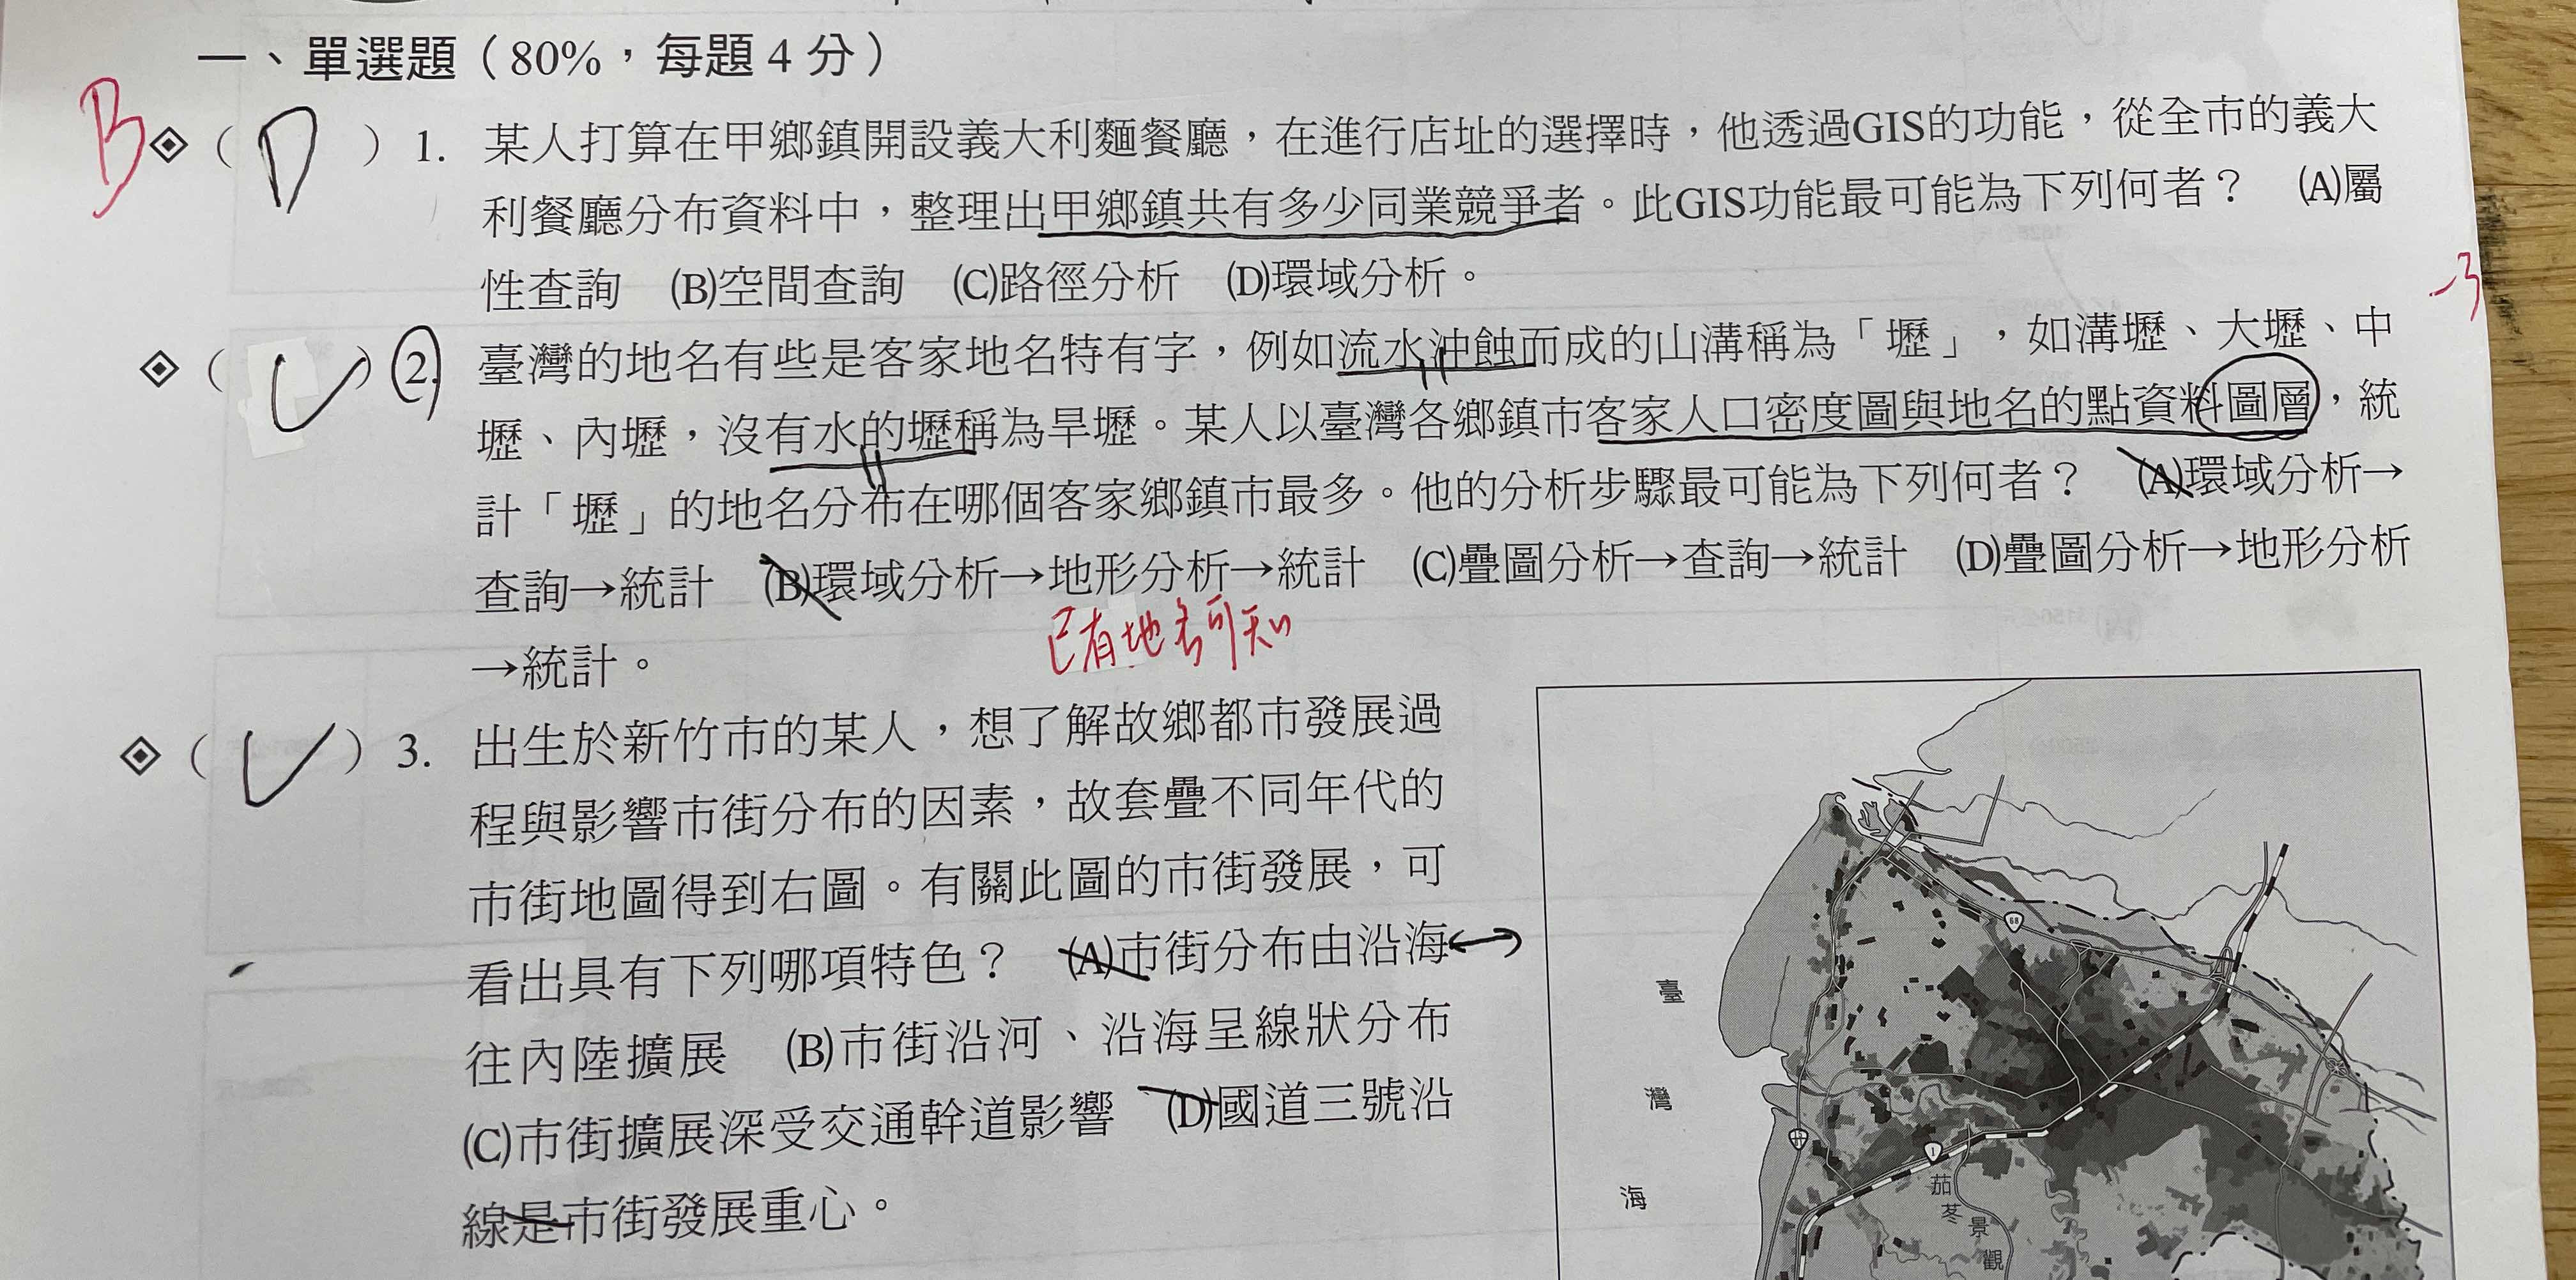 一、單選題（80%，每題4分）
B ◈（ D ）1. 某人打算在甲鄉鎮開設義大利麵餐廳，在進行店址的選擇時，他透過GIS的功能，從全市的義大
利餐廳分布資料中，整理出甲鄉鎮共有多少同業競爭者。此GIS功能最可能為下列何者？　(A)屬
性查詢　(B)空間查詢　(C)路徑分析　(D)環域分析。
-3
◈（ C ）2. 臺灣的地名有些是客家地名特有字，例如流水沖蝕而成的山溝稱為「壢」，如溝壢、大壢、中
壢、內壢，沒有水的壢稱為旱壢。某人以臺灣各鄉鎮市客家人口密度圖與地名的點資料圖層，統
計「壢」的地名分布在哪個客家鄉鎮市最多。他的分析步驟最可能為下列何者？　(A)環域分析→
查詢→統計　(B)環域分析→地形分析→統計　(C)疊圖分析→查詢→統計　(D)疊圖分析→地形分析
→統計。
已有地名可知
◈（ C ）3. 出生於新竹市的某人，想了解故鄉都市發展過
程與影響市街分布的因素，故套疊不同年代的
市街地圖得到右圖。有關此圖的市街發展，可
看出具有下列哪項特色？　(A)市街分布由沿海
往內陸擴展　(B)市街沿河、沿海呈線狀分布
(C)市街擴展深受交通幹道影響　(D)國道三號沿
線是市街發展重心。
臺
灣
海
68
15
1
茄
苳
景
觀